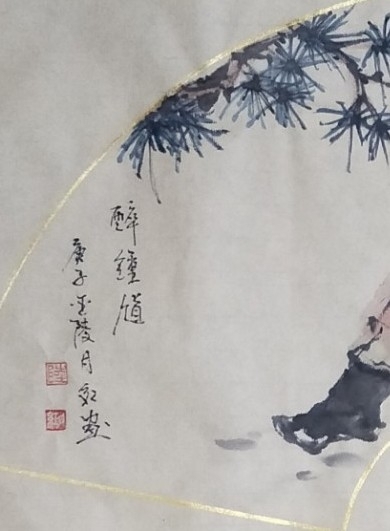 醉鍾馗
庚子金陵月紅畫